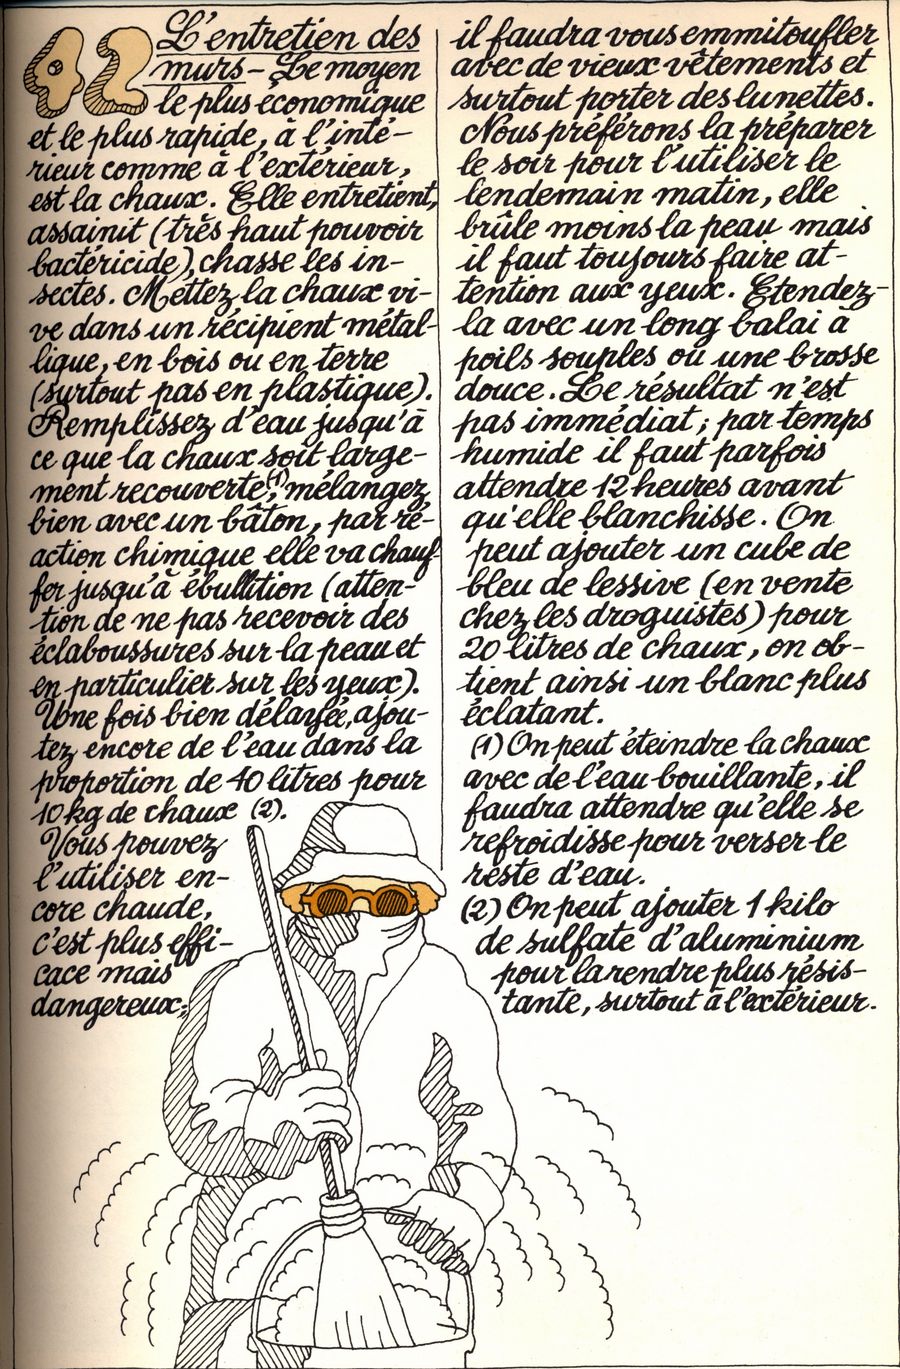 42 L'entretien des
murs – Le moyen
le plus économique
et le plus rapide, à l'inté-
rieur comme à l'extérieur,
est la chaux. Elle entretient,
assainit (très haut pouvoir
bactéricide), chasse les in-
sectes. Mettez la chaux vi-
ve dans un récipient métal-
lique, en bois ou en terre
(surtout pas en plastique).
Remplissez d'eau jusqu'à
ce que la chaux soit large-
ment recouverte(1), mélangez
bien avec un bâton, par ré-
action chimique elle va chauf-
fer jusqu'à ébullition (atten-
tion de ne pas recevoir des
éclaboussures sur la peau et
en particulier sur les yeux).
Une fois bien délayée, ajou-
tez encore de l'eau dans la
proportion de 40 litres pour
10 kg de chaux (2).
Vous pouvez
l'utiliser en-
core chaude,
c'est plus effi-
cace mais
dangereux;
il faudra vous emmitoufler
avec de vieux vêtements et
surtout porter des lunettes.
Nous préférons la préparer
le soir pour l'utiliser le
lendemain matin, elle
brûle moins la peau mais
il faut toujours faire at-
tention aux yeux. Etendez-
la avec un long balai à
poils souples ou une brosse
douce. Le résultat n'est
pas immédiat; par temps
humide il faut parfois
attendre 12 heures avant
qu'elle blanchisse. On
peut ajouter un cube de
bleu de lessive (en vente
chez les droguistes) pour
20 litres de chaux, on ob-
tient ainsi un blanc plus
éclatant.
(1) On peut éteindre la chaux
avec de l'eau bouillante, il
faudra attendre qu'elle se
refroidisse pour verser le
reste d'eau.
(2) On peut ajouter 1 kilo
de sulfate d'aluminium
pour la rendre plus résis-
tante, surtout à l'extérieur.